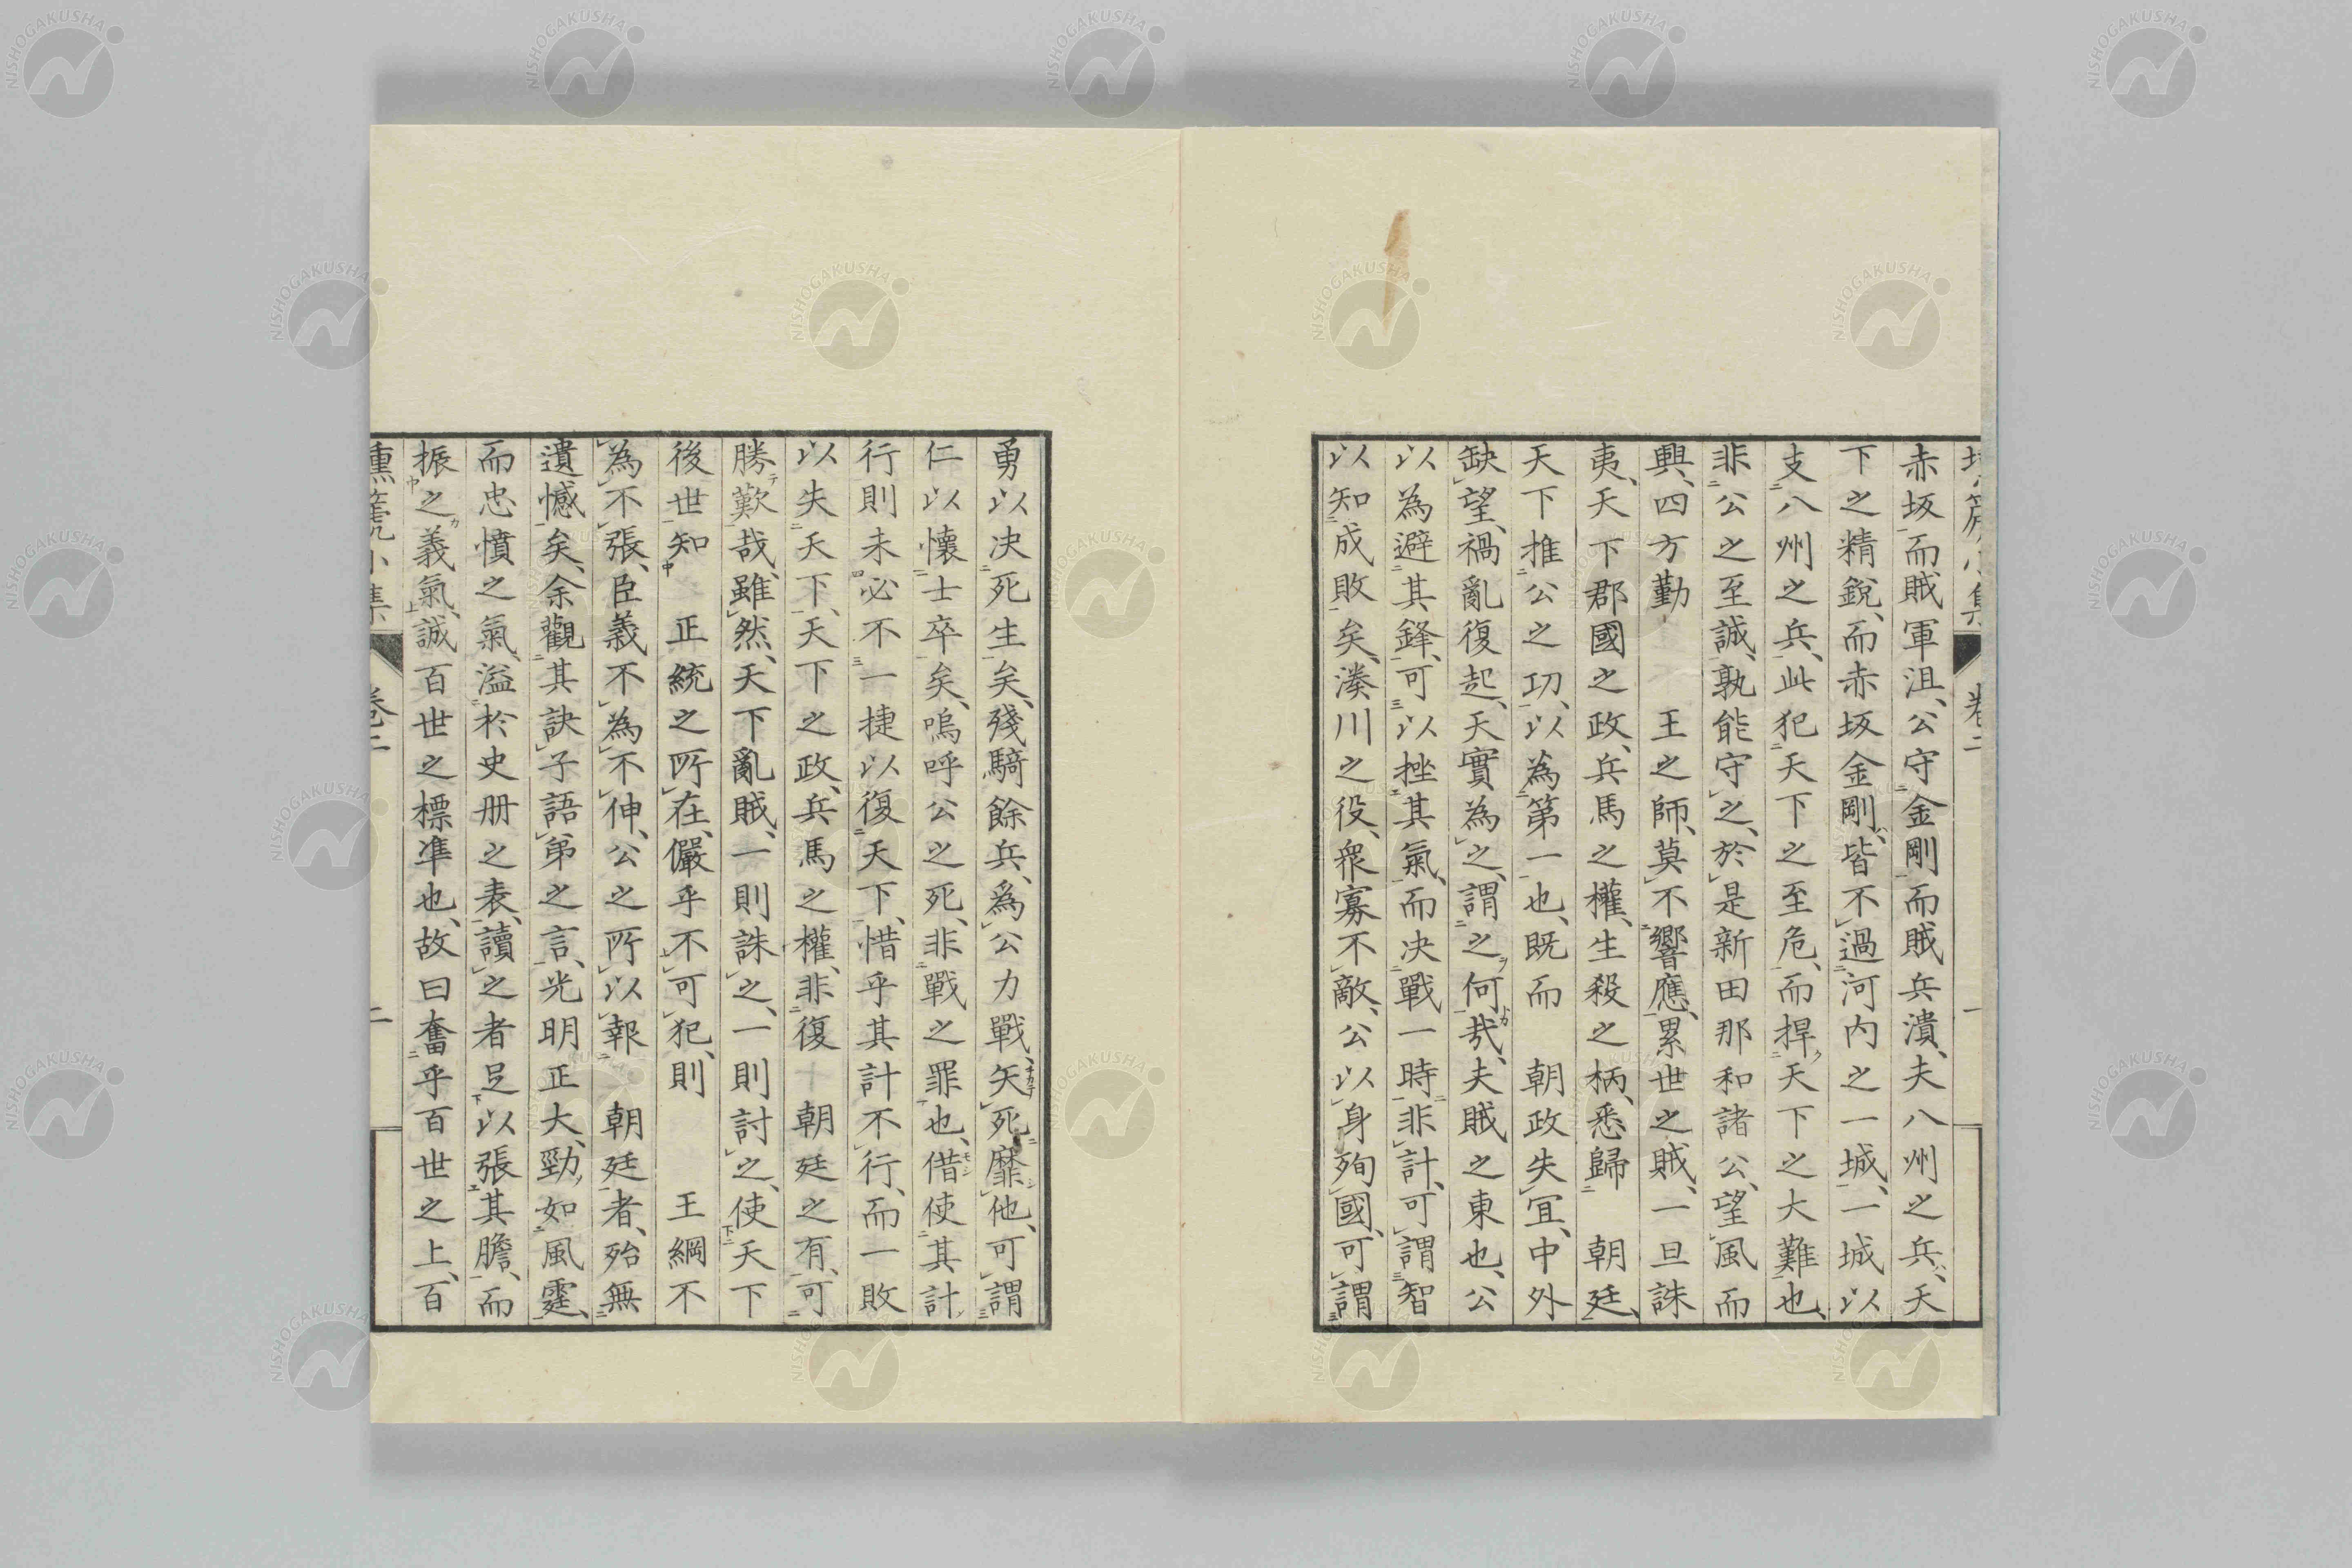 赤坂而賊軍沮、公守金剛而賊兵潰、夫八州之兵、天
下之精銳、而赤坂金剛、皆不過河内之一城、一城以
支八州之兵、此犯天下之至危、而捍天下之大難也、
非公之至誠、孰能守之、於是新田那和諸公、望風而
興、四方勤　王之師、莫不響應、累世之賊、一旦誅
夷、天下郡國之政、兵馬之權、生殺之柄、悉歸　朝廷、
天下推公之功、以為第一也、既而　朝政失宜、中外
缺望、禍亂復起、天實為之、謂之何哉、夫賊之東也、公
以為避其鋒、可以挫其氣、而決戰一時、非計、可謂智
以知成敗矣、湊川之役、衆寡不敵、公以身殉國、可謂
勇以決死生矣、殘騎餘兵、為公力戰、矢死靡他、可謂
仁以懷士卒矣、嗚呼公之死、非戰之罪也、借使其計
行則未必不一捷以復天下、惜乎其計不行、而一敗
以失天下、天下之政、兵馬之權、非復　朝廷之有、可
勝歎哉、雖然、天下亂賊、一則誅之、一則討之、使天下
後世知　正統之所在、儼乎不可犯、則　王綱不
為不張、臣義不為不伸、公之所以報　朝廷者、殆無
遺憾矣、余觀其訣子語弟之言、光明正大、勁如風霆、
而忠憤之氣、溢於史册之表、讀之者足以張其膽、而
振之義氣、誠百世之標準也、故曰奮乎百世之上、百
NISHOGAKUSHA